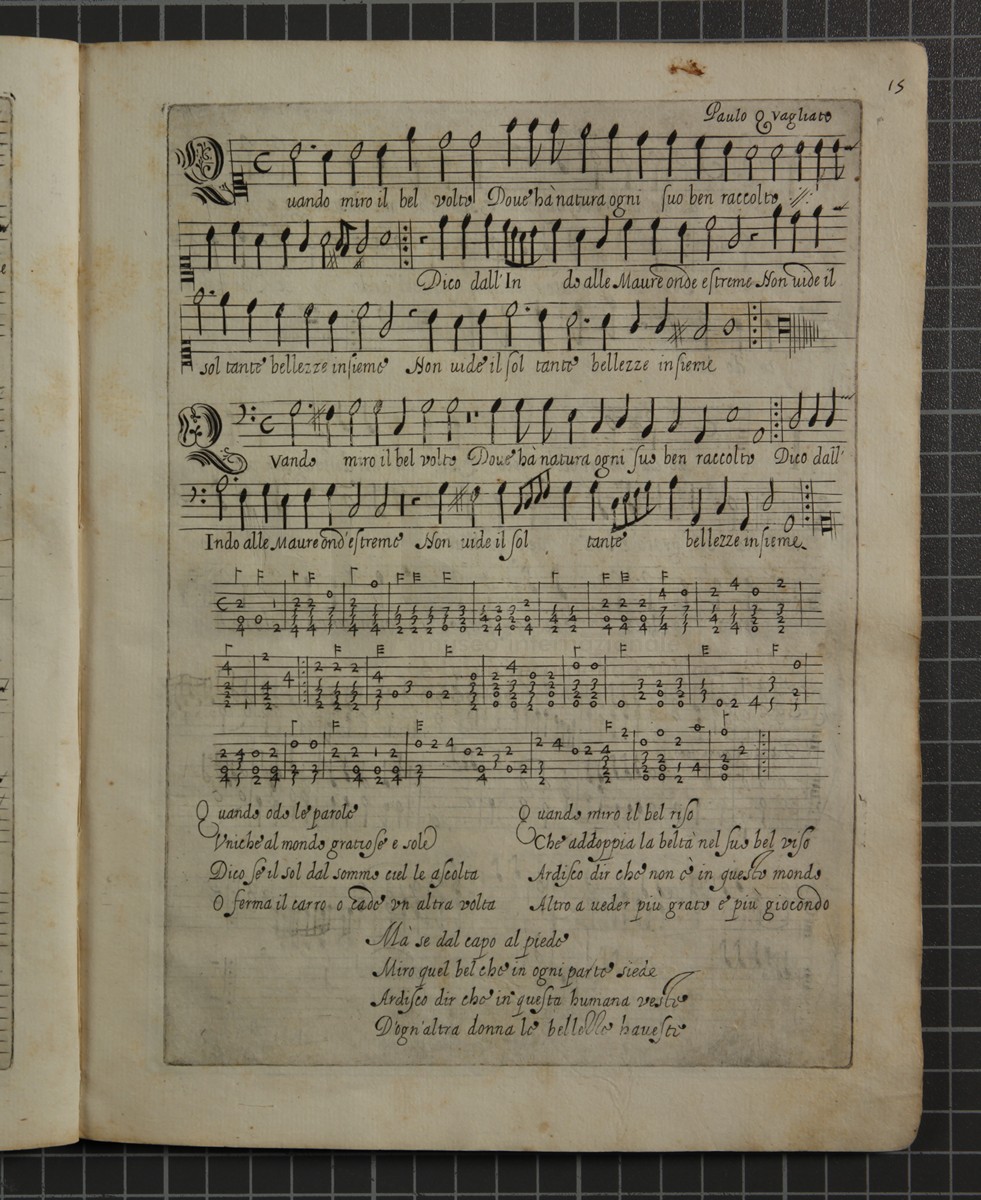 15
Paulo Quagliato
Quando miro il bel volto Doue hà natura ogni suo ben raccolto .//.
Dico dall' Indo alle Maure onde estreme Non uide il
sol tante bellezze insieme Non uide il sol tante bellezze insieme
QVando miro il bel volto Doue hà natura ogni suo ben raccolto Dico dall'
Indo alle Maure ond'estreme Non uide il sol tante bellezze insieme
Quando odo le parole
Vniche al mondo gratiose e sole
Dico se il sol dal sommo ciel le ascolta
O ferma il carro o cade vn altra volta
Quando miro il bel riso
Che addoppia la beltà nel suo bel viso
Ardisco dir che non è in questo mondo
Altro a ueder più grato e più giocondo
Mà se dal capo al piede
Miro quel bel che in ogni parte siede
Ardisco dir che in questa humana veste
D'ogn'altra donna le belle haueste